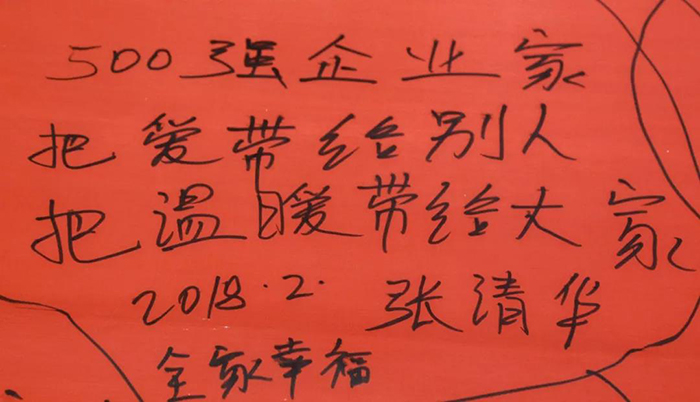 500强企业家
把爱带给别人
把温暖带给大家
2018.2. 张清华
全家幸福